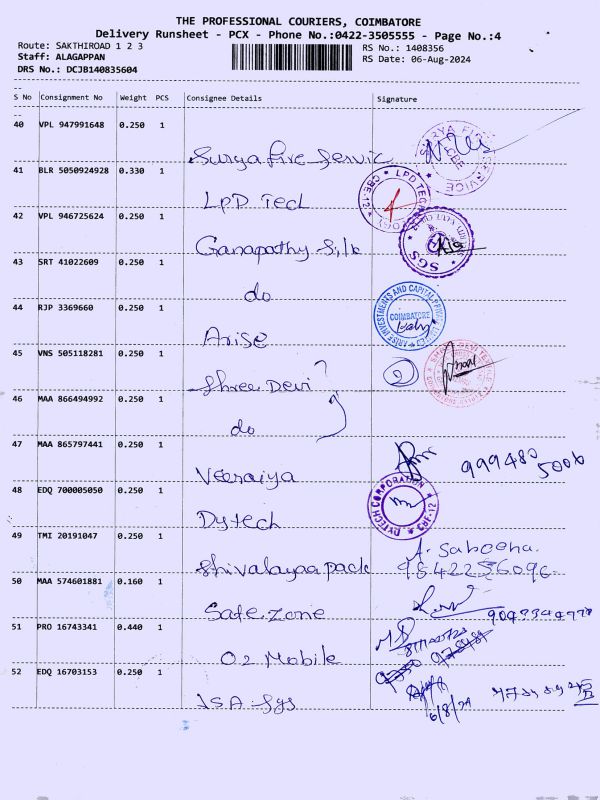 THE PROFESSIONAL COURIERS, COIMBATORE
Delivery Runsheet - PCX - Phone No.:0422-3505555 - Page No.:4
Route: SAKTHIROAD 1 2 3 RS No.: 1408356
Staff: ALAGAPPAN RS Date: 06-Aug-2024
DRS No.: DCJB140835604
S No Consignment No Weight PCS Consignee Details Signature
40 VPL 947991648 0.250 1
Surya fire Servic
41 BLR 5050924928 0.330 1
LPD Tech
42 VPL 946725624 0.250 1
Ganapathy Silk
43 SRT 41022609 0.250 1
do
44 RJP 3369660 0.250 1
Arise
COIMBATORE
45 VNS 505118281 0.250 1
Shree Devi
2
46 MAA 866494992 0.250 1
do
47 MAA 865797441 0.250 1
Veeraiya
999480 5006
48 EDQ 700005050 0.250 1
Dytech
DYTECH CORPORATION
49 TMI 20191047 0.250 1
Shivalayaa pack
A. Sabeena.
9842256096
50 MAA 574601881 0.160 1
Safe Zone
51 PRO 16743341 0.440 1
O2 Mobile
52 EDQ 16703153 0.250 1
ISA Sys
6/8/24